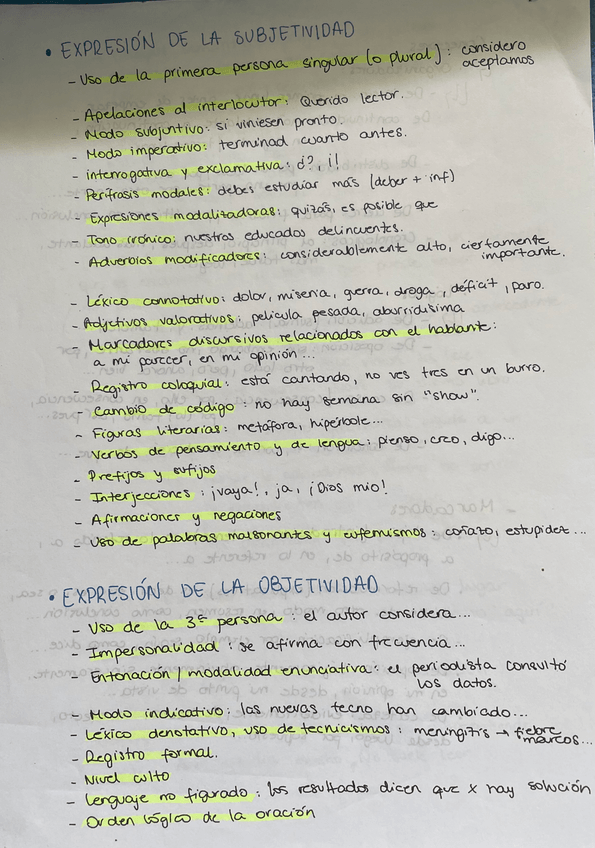 • EXPRESIÓN DE LA SUBJETIVIDAD
- Uso de la primera persona singular (o plural): considero
aceptamos
- Apelaciones al interlocutor: Querido lector.
- Modo subjuntivo: si viniesen pronto.
- Modo imperativo: terminad cuanto antes.
- interrogativa y exclamativa: ¿?, ¡!
- Perífrasis modales: debes estudiar más (deber + inf)
- Expresiones modalizadoras: quizás, es posible que
- Tono irónico: nuestros educados delincuentes.
- Adverbios modificadores: considerablemente alto, ciertamente
importante.
- Léxico connotativo: dolor, miseria, guerra, droga, déficit, paro.
- Adjetivos valorativos: película pesada, aburridísima
- Marcadores discursivos relacionados con el hablante:
a mi parecer, en mi opinión...
- Registro coloquial: está cantando, no ves tres en un burro.
- Cambio de código: no hay semana sin "show".
- Figuras literarias: metáfora, hipérbole...
- Verbos de pensamiento y de lengua: pienso, creo, digo...
- Prefijos y sufijos
- Interjecciones: ¡vaya!, ja, ¡Dios mio!
- Afirmaciones y negaciones
- Uso de palabras malsonantes y eufemismos: coñazo, estupidez...
• EXPRESIÓN DE LA OBJETIVIDAD
- Uso de la 3ª persona: el autor considera...
- Impersonalidad: se afirma con frecuencia...
- Entonación / modalidad enunciativa: el periodista consultó
los datos.
- Modo indicativo: las nuevas tecno han cambiado...
- Léxico denotativo, uso de tecnicismos: meningitis → fiebre
mareos...
- Registro formal.
- Nivel culto
- Lenguaje no figurado: los resultados dicen que x hay solución
- Orden lógico de la oración